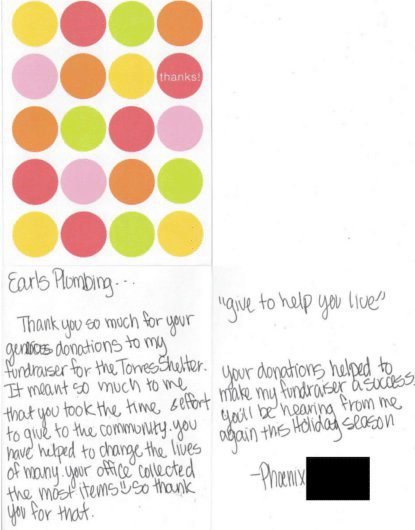 thanks!
Earls Plumbing...
Thank you so much for your
generous donations to my
fundraiser for the Torres Shelter.
It meant so much to me
that you took the time & effort
to give to the community. you
have helped to change the lives
of many. your office collected
the most items so thank
you for that.
"give to help you live"
your donations helped to
make my fundraiser a success.
you'll be hearing from me
again this Holiday season
-Phoenix